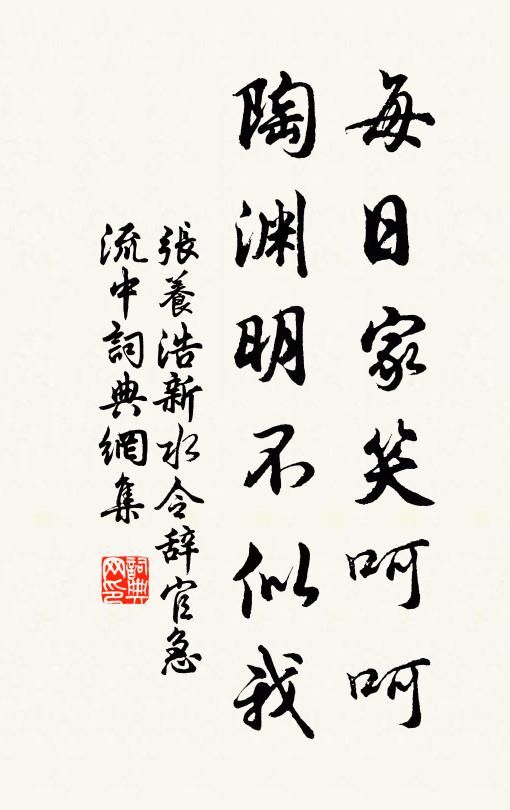 每日家笑呵呵
陶渊明不似我
張養浩新水令辞官急
流中詞典網集
詞典网印